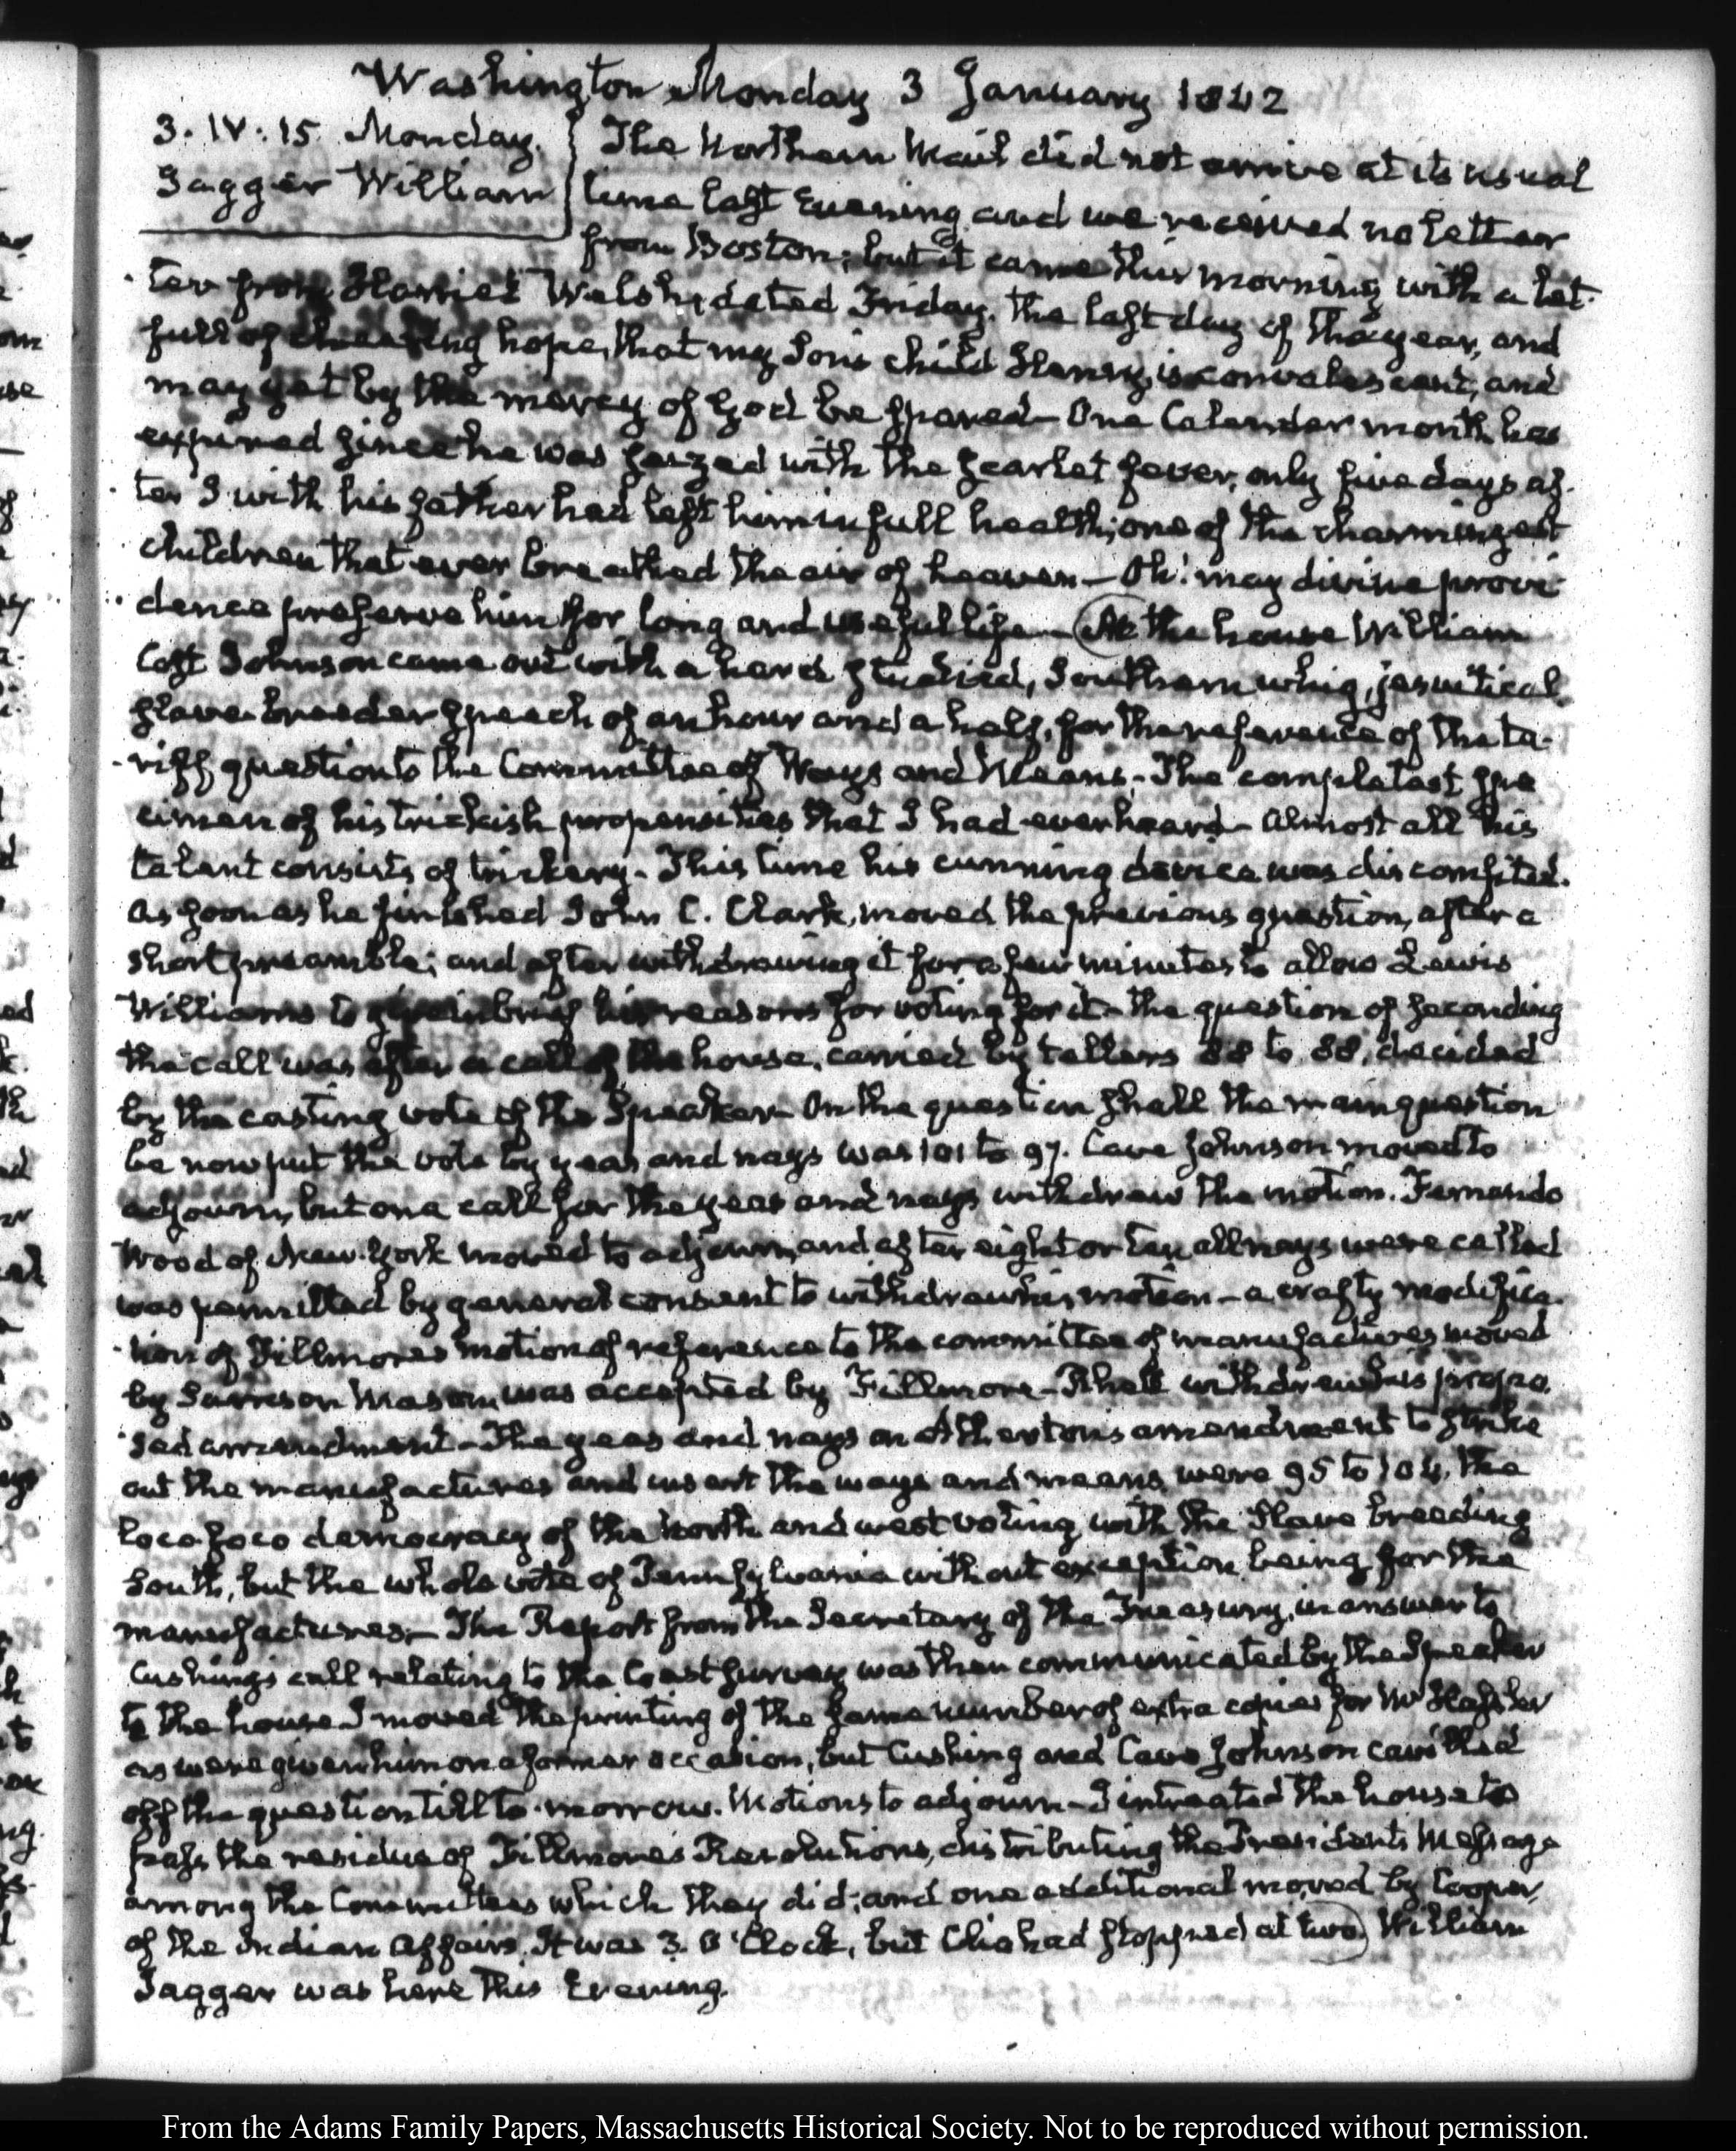 Washington Monday 3 January 1842
3. IV:15. Monday.
Jagger William
The Northern Mail did not arrive at its usual
time last Evening and we received no letter
from Boston; but it came this morning with a let-
ter from Harriet Welsh, dated Friday, the last day of the year, and
full of cheering hope, that my Son's child Henry, is convalescent, and
may yet by the mercy of God be spared— One Calendar month has
expired since he was seized with the scarlet fever, only five days af-
ter I with his father had left him in full health; one of the charmingest
children that ever breathed the air of heaven— Oh! may divine provi-
dence preserve him for long and useful life— At the house William
Cost Johnson came out with a hard studied, Southern whig, jesuitical,
slave-breeder speech of an hour and a half, for the reference of the ta-
riff question to the Committee of Ways and Means,— The completest spe
cimen of his trickish propensities that I had ever heard— Almost all his
talent consists of trickery. This time his cunning device was discomfited.
As soon as he finished John C. Clark, moved the previous question, after a
short preamble; and after withdrawing it for a few minutes to allow Lewis
Williams to give in brief his reasons for voting for it— the question of seconding
the call was after a call of the house, carried by tellers 88 to 88, decided
by the casting vote of the Speaker— On the question shall the main question
be now put the vote by yeas and nays was 101 to 97. Cave Johnson moved to
adjourn, but on a call for the yeas and nays withdrew the motion. Fernando
Wood of New-York moved to adjourn, and after eight or ten all nays were called
was permitted by general consent to withdraw his motion— a crafty modifica-
tion of Fillmore's motion of reference to the committee of manufactures moved
by Samson Mason, was accepted by Fillmore— Rhett withdrew his propo-
sed amendment— The yeas and nays on Atherton's amendment to strike
out the manufactures and insert the ways and means, were 95 to 104, the
loco foco democracy of the North and west voting with the Slave breeding
South, but the whole vote of Pennsylvania without exception being for the
manufactures— The Report from the Secretary of the Treasury, in answer to
Cushing's call relating to the Coast survey was then communicated by the Speaker
to the house I moved the printing of the same number of extra copies for Mr Hassler
as were given him on a former occasion, but Cushing and Cave Johnson cavilled
off the question till to-morrow. Motions to adjourn— I intreated the house to
pass the residue of Fillmore's Resolutions, distributing the President's Message
among the Committees which they did; and one additional moved by Cooper,
of the Indian Affairs. It was 3. O'Clock, but Clio had stopped at two. William
Jagger was here this Evening.
From the Adams Family Papers, Massachusetts Historical Society. Not to be reproduced without permission.